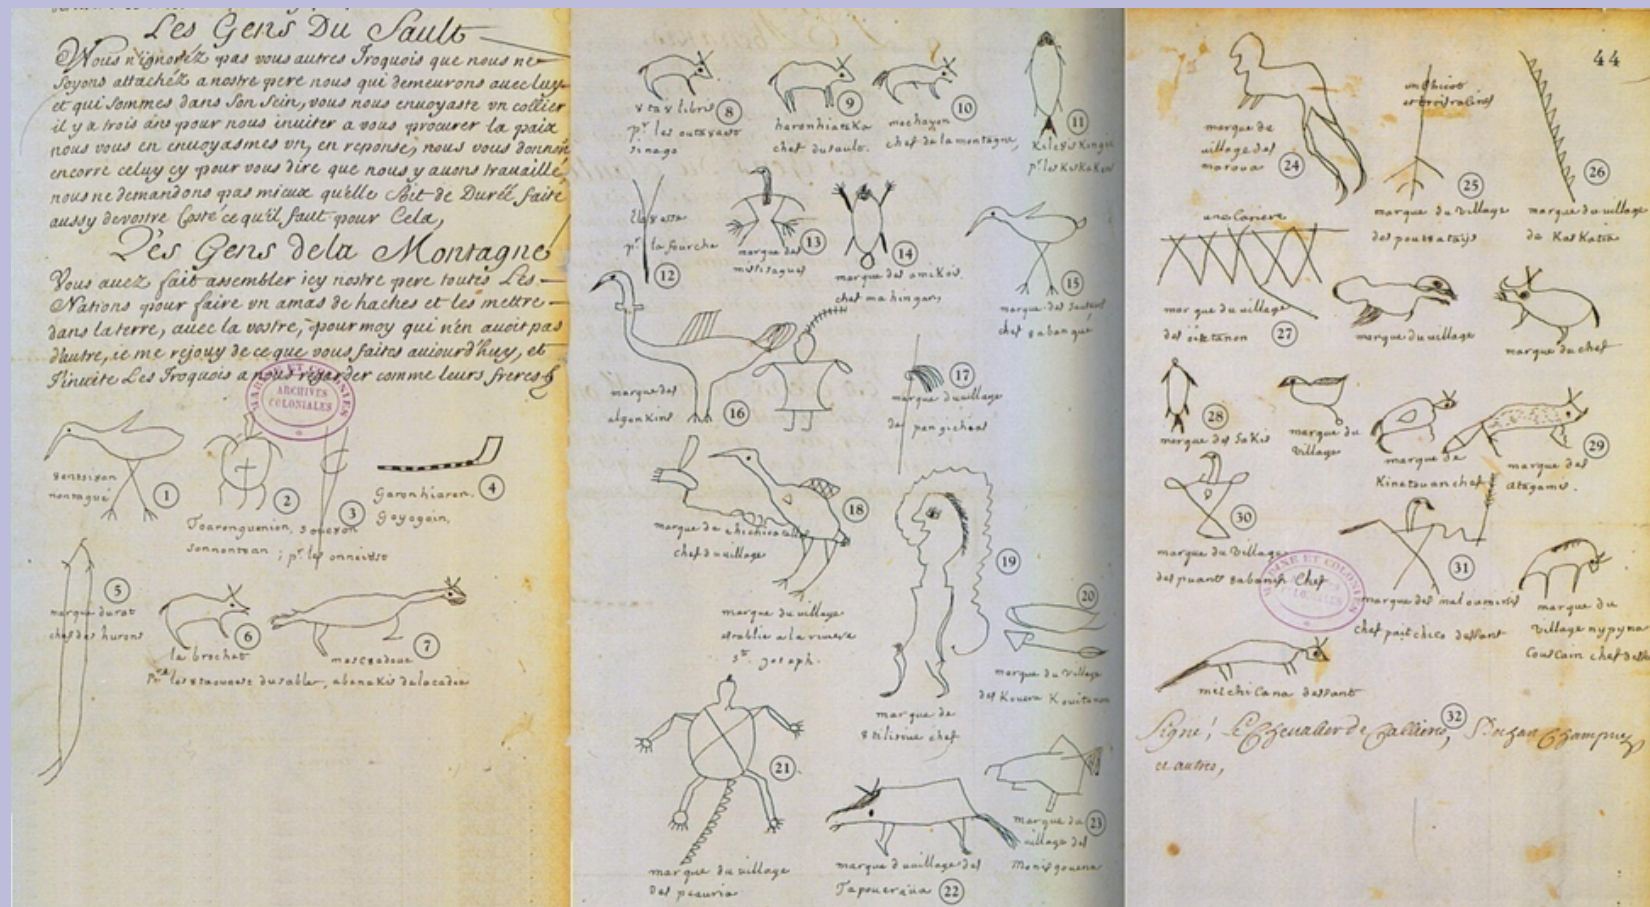 Les Gens Du Sault
Vous n'ignoréz pas vous autres Iroquois que nous ne
soyons attachéz a nostre pere nous qui demeurons auec luy
et qui sommes dans son sein, vous nous enuoyaste vn collier
il y a trois ans pour nous inuiter a vous procurer la paix
nous vous en enuoyasmes vn, en reponse, nous vous donnon
encorre celuy cy pour vous dire que nous y auons trauaillé,
nous ne demandons pas mieux qu'elle soit de Durée, faite
aussy de vostre Costé ce qu'il faut pour Cela,
Les Gens de la Montagne
Vous auez fait assembler icy nostre pere toutes Les
Nations pour faire vn amas de haches et les mettre
dans la terre, auec la vostre, pour moy qui n'en auoit pas
d'autre, ie me rejouy de ce que vous faites aujourd'huy, et
J'inuite Les Iroquois a nous regarder comme leurs freres
ARCHIVES
COLONIALES
1
2
3
4
Garonhiaron,
Goyogoin,
Toarenguenion,
sonnontoan ; pr les onneiost
5
marque du rat
chef des hurons
6
le brochet
7
pr les 8ta8ouest du sable, abenakis de lacadie
8
pr les outa8ast
sinago
9
haronhiateka
chef du sault.
10
mechayon
chef de la montagne,
11
pr les KisKaKons
12
pr la fourche
13
marque des
missisagues
14
marque des amikois,
chef mahingan,
15
marque des sauteurs
chef 8abangué
16
marque des
algonkins
17
marque du village
18
marque de chichicatalo
chef du village
marque du village
establie a la riuiere
st. joseph.
19
marque de
chef
20
marque du village
des Kouera Kouitanon
21
marque du village
des peauria
22
marque du village des
Tapouer8ua
23
marque du
village des
Monisgouena
44
24
marque du
village des
maroua
25
marque du village
26
marque du village
de Kaskatia
27
marque du village
marque du village
marque du chef
28
marque des Sakis
marque du
Village
marque de
29
marque des
30
marque du Village
des puant 8abanis Chef
31
marque des malouminis
marque du
Village
32
signé, Le Cheualier de Callieres,
et autres,